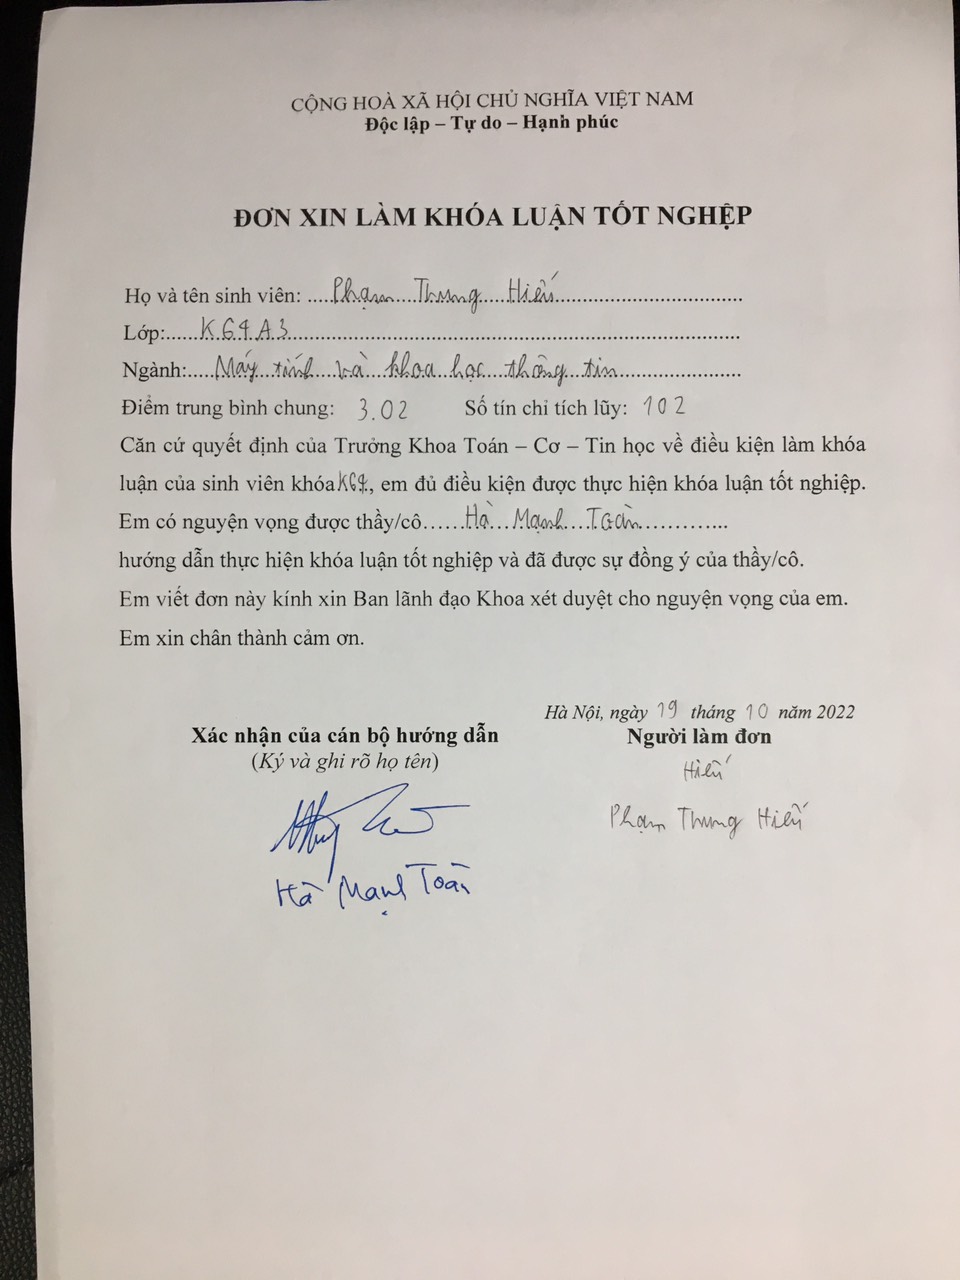 CỘNG HOÀ XÃ HỘI CHỦ NGHĨA VIỆT NAM
Độc lập – Tự do – Hạnh phúc
ĐƠN XIN LÀM KHÓA LUẬN TỐT NGHỆP
Họ và tên sinh viên: .....Phạm....Trung.....Hiếu...................................
Lớp:......K64A3...................................................................................
Ngành:.....Máy...tính....và...khoa...học....thông...tin.......................
Điểm trung bình chung: 3.02 Số tín chỉ tích lũy: 102
Căn cứ quyết định của Trưởng Khoa Toán – Cơ – Tin học về điều kiện làm khóa
luận của sinh viên khóa K64, em đủ điều kiện được thực hiện khóa luận tốt nghiệp.
Em có nguyện vọng được thầy/cô……Hà…Mạnh…Toàn…………..
hướng dẫn thực hiện khóa luận tốt nghiệp và đã được sự đồng ý của thầy/cô.
Em viết đơn này kính xin Ban lãnh đạo Khoa xét duyệt cho nguyện vọng của em.
Em xin chân thành cảm ơn.
Hà Nội, ngày 19 tháng 10 năm 2022
Xác nhận của cán bộ hướng dẫn Người làm đơn
(Ký và ghi rõ họ tên) Hiếu
Phạm Trung Hiếu
Hà Mạnh Toàn